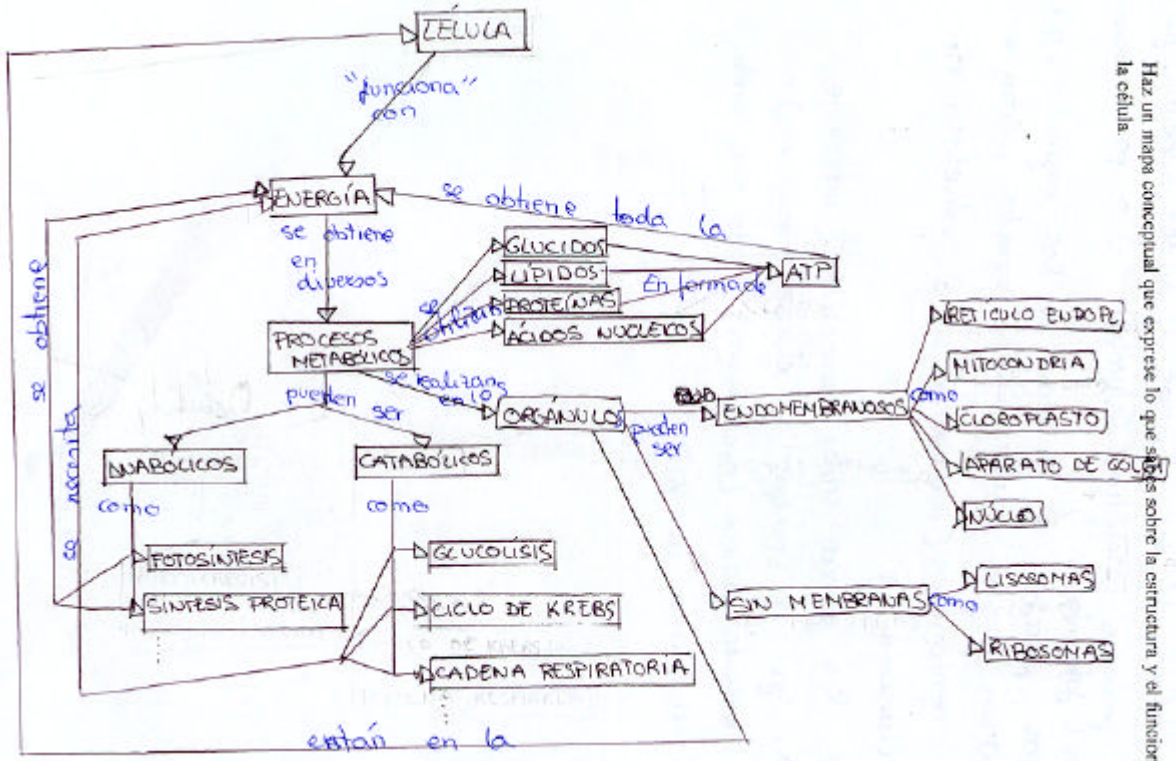 Haz un mapa conceptual que exprese lo que sabes sobre la estructura y el funcion
la célula.
CÉLULA
"funciona"
con
ENERGÍA
se obtiene
en
diversos
se obtiene toda la
GLUCIDOS
LÍPIDOS
PROTEÍNAS
ÁCIDOS NUCLEICOS
En forma de
ATP
PROCESOS
METABÓLICOS
se realizan
en
pueden
ser
ORGÁNULOS
pueden
ser
ENDOMEMBRANOSOS
como
RETÍCULO ENDOPL
MITOCONDRIA
CLOROPLASTO
APARATO DE GOLGI
NÚCLEO
SIN MEMBRANAS
como
LISOSOMAS
RIBOSOMAS
ANABÓLICOS
como
FOTOSÍNTESIS
SÍNTESIS PROTÉICA
CATABÓLICOS
como
GLUCOLÍSIS
CICLO DE KREBS
CADENA RESPIRATORIA
se obtiene
se necesita
están en la